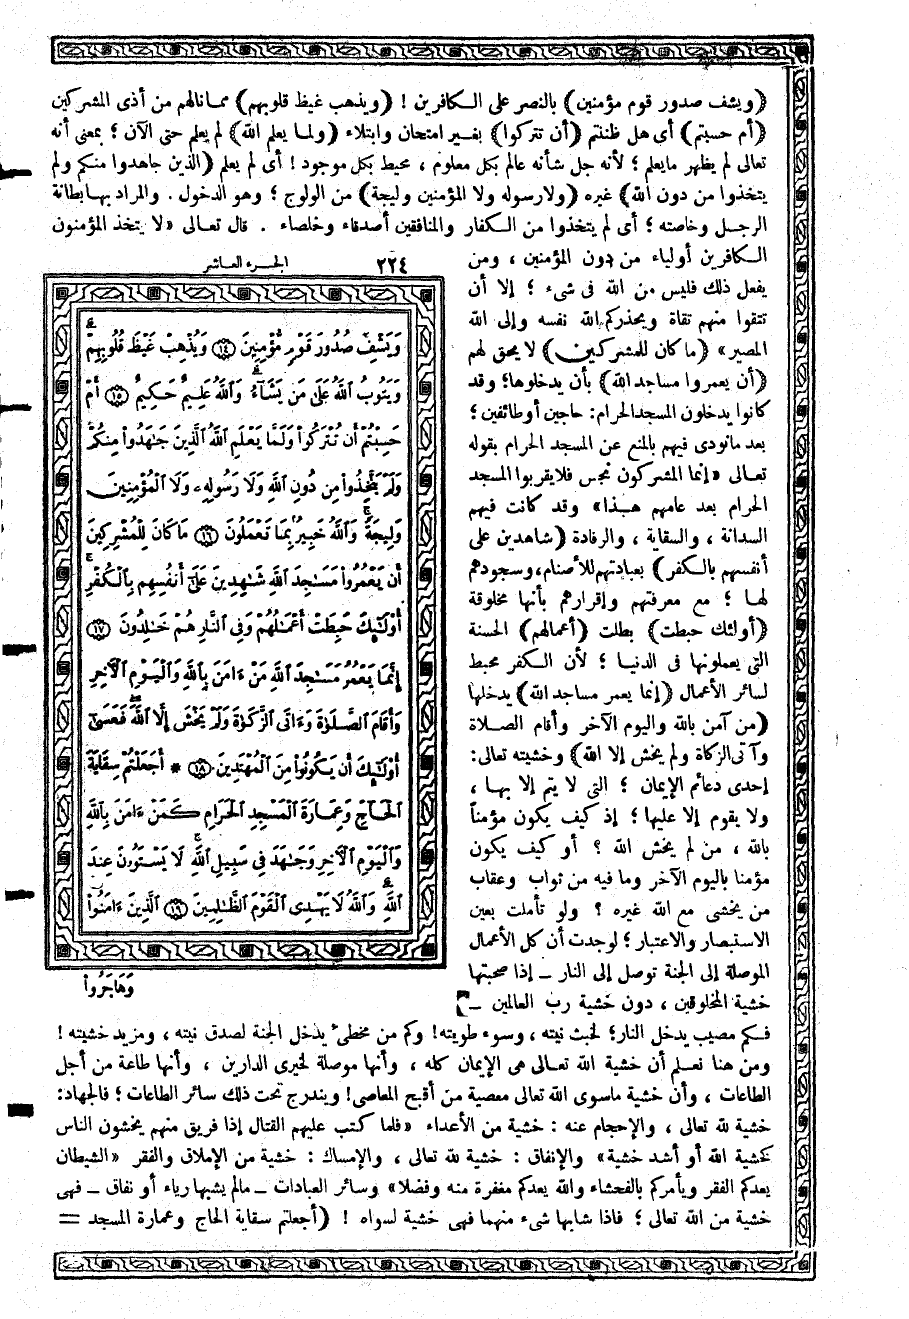 (ويشف صدور قوم مؤمنين) بالنصر على الكافرين ! (ويذهب غيظ قلوبهم) مما نالهم من أذى المشركين
(أم حسبتم) أى هل ظننتم (أن تتركوا) بغير امتحان وابتلاء (ولما يعلم الله) لم يعلم حتى الآن ؛ بمعنى أنه
تعالى لم يظهر مايعلم ؛ لأنه جل شأنه عالم بكل معلوم ، محيط بكل موجود ! أى لم يعلم (الذين جاهدوا منكم ولم
يتخذوا من دون الله) غيره (ولا رسوله ولا المؤمنين وليجة) من الولوج ؛ وهو الدخول . والمراد بها بطانة
الرجل وخاصته ؛ أى لم يتخذوا من الكفار والمنافقين أصدقاء وخلصاء . قال تعالى «لا يتخذ المؤمنون
الكافرين أولياء من دون المؤمنين ، ومن
يفعل ذلك فليس من الله فى شىء ؛ إلا أن
تتقوا منهم تقاة ويحذركم الله نفسه وإلى الله
المصير» (ما كان للمشركين) لا يحق لهم
(أن يعمروا مساجد الله) بأن يدخلوها؛ وقد
كانوا يدخلون المسجد الحرام: حاجين أو طائفين ؛
بعد مانودى فيهم بالمنع عن المسجد الحرام بقوله
تعالى «إنما المشركون نجس فلا يقربوا المسجد
الحرام بعد عامهم هذا» وقد كانت فيهم
السدانة ، والسقاية ، والرفادة (شاهدين على
أنفسهم بالكفر) بعبادتهم للأصنام، وسجودهم
لها ؛ مع معرفتهم وإقرارهم بأنها مخلوقة
(أولئك حبطت) بطلت (أعمالهم) الحسنة
التى يعملونها فى الدنيا ؛ لأن الكفر محبط
لسائر الأعمال (إنما يعمر مساجد الله) يدخلها
(من آمن بالله واليوم الآخر وأقام الصلاة
وآتى الزكاة ولم يخش إلا الله) وخشيته تعالى:
إحدى دعائم الإيمان ؛ التى لا يتم إلا بها ،
ولا يقوم إلا عليها ؛ إذ كيف يكون مؤمناً
بالله ، من لم يخش الله ؟ أو كيف يكون
مؤمنا باليوم الآخر وما فيه من ثواب وعقاب
من يخشى مع الله غيره ؟ ولو تأملت بعين
الاستبصار والاعتبار ؛ لوجدت أن كل الأعمال
الموصلة إلى الجنة توصل إلى النار ــ إذا صحبتها
خشية المخلوقين ، دون خشية رب العالمين ــ
٢٢٤ الجزء العاشر
وَيَشْفِ صُدُورَ قَوْمٍ مُّؤْمِنِينَ ﴿١٤﴾ وَيُذْهِبْ غَيْظَ قُلُوبِهِمْ
وَيَتُوبُ اللَّهُ عَلَىٰ مَن يَشَآءُ وَاللَّهُ عَلِيمٌ حَكِيمٌ ﴿١٥﴾ أَمْ
حَسِبْتُمْ أَن تُتْرَكُوا۟ وَلَمَّا يَعْلَمِ اللَّهُ الَّذِينَ جَٰهَدُوا۟ مِنكُمْ
وَلَمْ يَتَّخِذُوا۟ مِن دُونِ اللَّهِ وَلَا رَسُولِهِۦ وَلَا الْمُؤْمِنِينَ
وَلِيجَةً وَاللَّهُ خَبِيرٌۢ بِمَا تَعْمَلُونَ ﴿١٦﴾ مَا كَانَ لِلْمُشْرِكِينَ
أَن يَعْمُرُوا۟ مَسَٰجِدَ اللَّهِ شَٰهِدِينَ عَلَىٰٓ أَنفُسِهِم بِالْكُفْرِ
أُو۟لَٰٓئِكَ حَبِطَتْ أَعْمَٰلُهُمْ وَفِى النَّارِ هُمْ خَٰلِدُونَ ﴿١٧﴾
إِنَّمَا يَعْمُرُ مَسَٰجِدَ اللَّهِ مَنْ ءَامَنَ بِاللَّهِ وَالْيَوْمِ الْءَاخِرِ
وَأَقَامَ الصَّلَوٰةَ وَءَاتَى الزَّكَوٰةَ وَلَمْ يَخْشَ إِلَّا اللَّهَ فَعَسَىٰٓ
أُو۟لَٰٓئِكَ أَن يَكُونُوا۟ مِنَ الْمُهْتَدِينَ ﴿١٨﴾ * أَجَعَلْتُمْ سِقَايَةَ
الْحَآجِّ وَعِمَارَةَ الْمَسْجِدِ الْحَرَامِ كَمَنْ ءَامَنَ بِاللَّهِ
وَالْيَوْمِ الْءَاخِرِ وَجَٰهَدَ فِى سَبِيلِ اللَّهِ لَا يَسْتَوُۥنَ عِندَ
اللَّهِ وَاللَّهُ لَا يَهْدِى الْقَوْمَ الظَّٰلِمِينَ ﴿١٩﴾ الَّذِينَ ءَامَنُوا۟
وَهَاجَرُوا۟
فكم مصيب يدخل النار؛ لخبث نيته ، وسوء طويته! وكم من مخطئ يدخل الجنة لصدق نيته ، ومزيد خشيته !
ومن هنا نعلم أن خشية الله تعالى هى الإيمان كله ، وأنها موصلة لخيرى الدارين ، وأنها طاعة من أجل
الطاعات ، وأن خشية ماسوى الله تعالى معصية من أقبح المعاصى! ويندرج تحت ذلك سائر الطاعات ؛ فالجهاد:
خشية لله تعالى ، والإحجام عنه : خشية من الأعداء «فلما كتب عليهم القتال إذا فريق منهم يخشون الناس
كخشية الله أو أشد خشية» والإنفاق : خشية لله تعالى ، والإمساك : خشية من الإملاق والفقر «الشيطان
يعدكم الفقر ويأمركم بالفحشاء والله يعدكم مغفرة منه وفضلا» وسائر العبادات ــ مالم يشبها رياء أو نفاق ــ فهى
خشية من الله تعالى ؛ فاذا شابها شىء منهما فهى خشية لسواه ! (أجعلتم سقاية الحاج وعمارة المسجد =